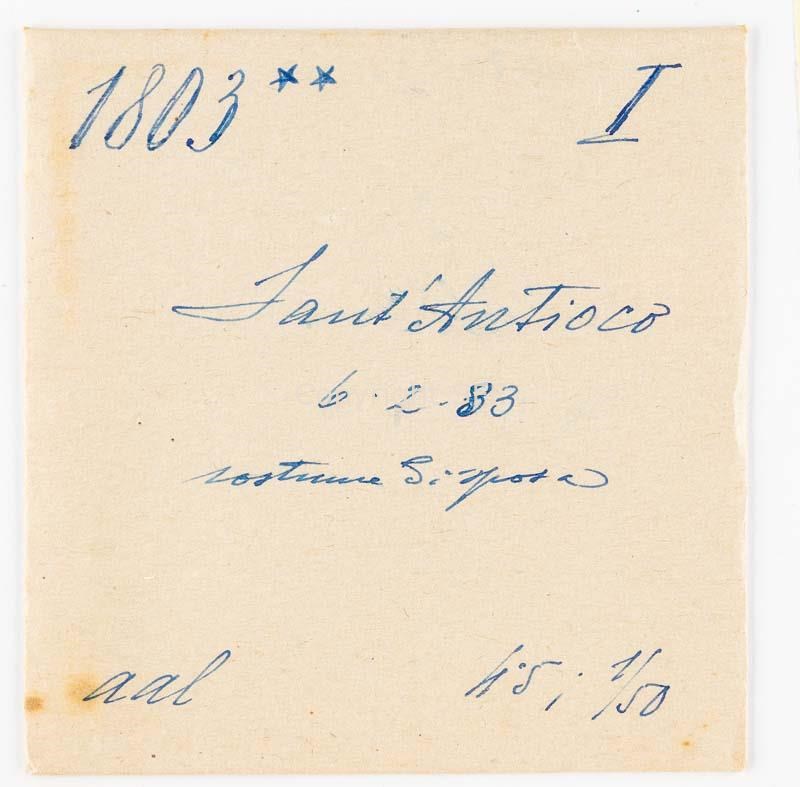 1803 ** I
Sant'Antioco
6-2-83
costume Sposa
aal 4.5; 1/50